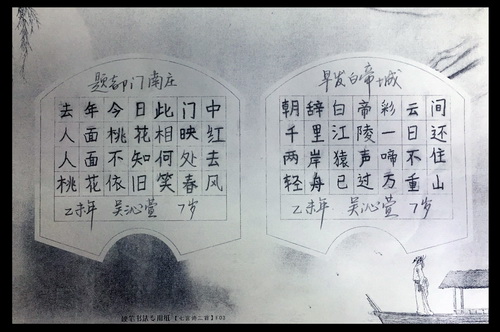 题都门南庄
去年今日此门中
人面桃花相映红
人面不知何处去
桃花依旧笑春风
乙未年 吴沁萱 7岁
早发白帝城
朝辞白帝彩云间
千里江陵一日还
两岸猿声啼不住
轻舟已过万重山
乙未年 吴沁萱 7岁
硬笔书法专用纸【七言诗二首】